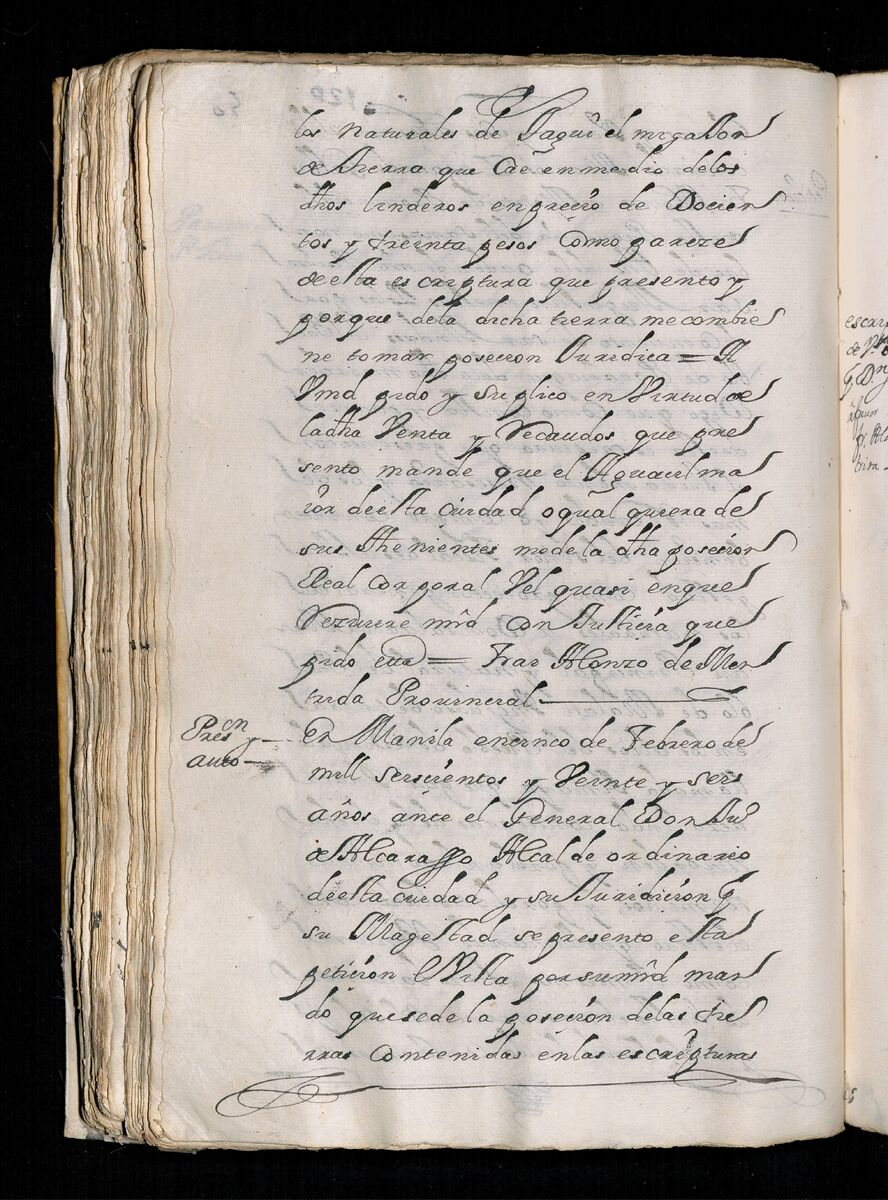 los naturales de Taguî el migaDor
de tierra que Cae en medio de los
dhos linderos en precio de Docien
tos y treinta pesos Como pareze
de esta escriptura que presento y
porque dela dicha tierra me combie
ne tomar posecion Juridica = A
Vmd pido y suplico en Virtud de
la dha Venta y Recaudos que pre
sento mande que el Aguacil ma
ior de esta ciudad o qual quiera de
sus thenientes me de la dha posecion
Real corporal Vel quasi en que
Rezuiere mrd con Justicia que
pido etta = Frai Alonzo de Men
trida Provincial
Prescn y
auto
En Manila en cinco de Febrero de
mill seiscientos y Veinte y seis
años ante el General Don Juo
de Alcarasso Alcalde ordinario
de esta ciudad y su Juridicion p
su Magestad se presento esta
peticion Vista por su mrd man
do que se de la posecion de las tie
rras contenidas en las escripturas
escri
de